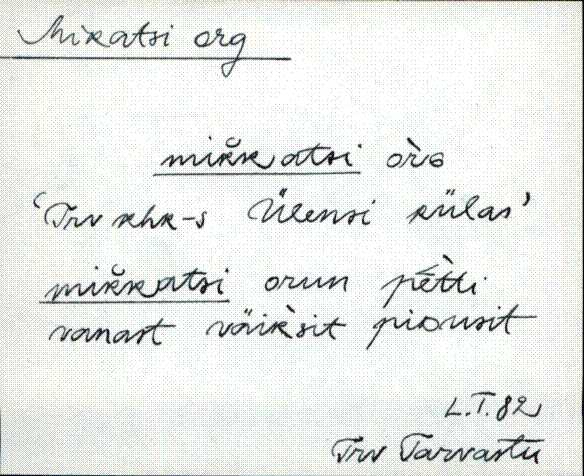 Mikatsi org
mikk atsi òrG
‘Trv khk-s Ülensi külas’
mikkatsi orun pètti
vanast väikèsit piDusit
L.T. 82
Trv Tarvastu